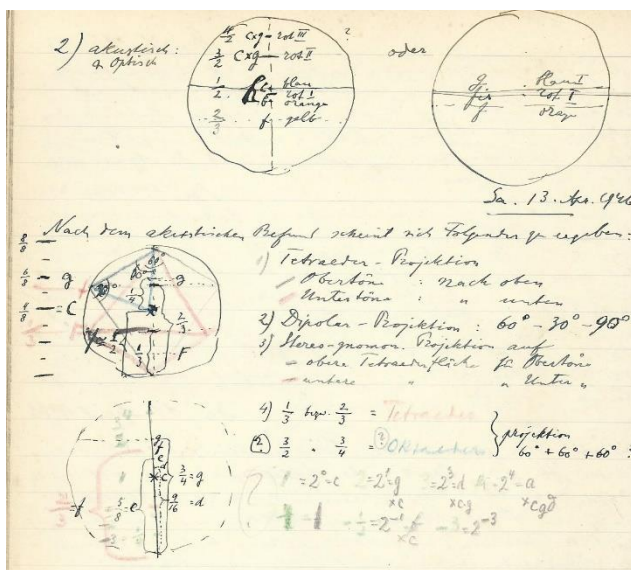 2) akustisch:
& optisch
4/2 c x g - rot III
3/2 c x g - rot II
1/2 blau
rot I
orange
2/3 f - gelb
?
oder
g blau I
fis rot I
f orange
Sa. 13. Apr. 1946
Nach dem akustischen Befund scheint sich Folgendes zu ergeben:
8/8
6/8 - g
4/8 = C
60°
90°
g
1/4
2/3
1/2
1/3
F
1) Tetraeder-Projektion
Obertöne : nach oben
Untertöne : " unten
2) Dipolar-Projektion : 60° - 30° - 90°
3) Stereo-gnomon. Projektion auf
- obere Tetraederfläche für Obertöne
- untere " " Unter "
4) 1/3 bzw. 2/3 = Tetraeder
(2.) 3/2 " 3/4 = (?) Oktaeder
projektion
60° + 60° + 60° ?
3/4 = g
9/16 = d
5/8 = e
1 = 2⁰ = c 2 = 2¹ = g 3 = 2³ = d 4 = 2⁴ = a
x c x c g x c g d
- 1/2 = 2⁻¹ = f - 3 = 2⁻³
x c